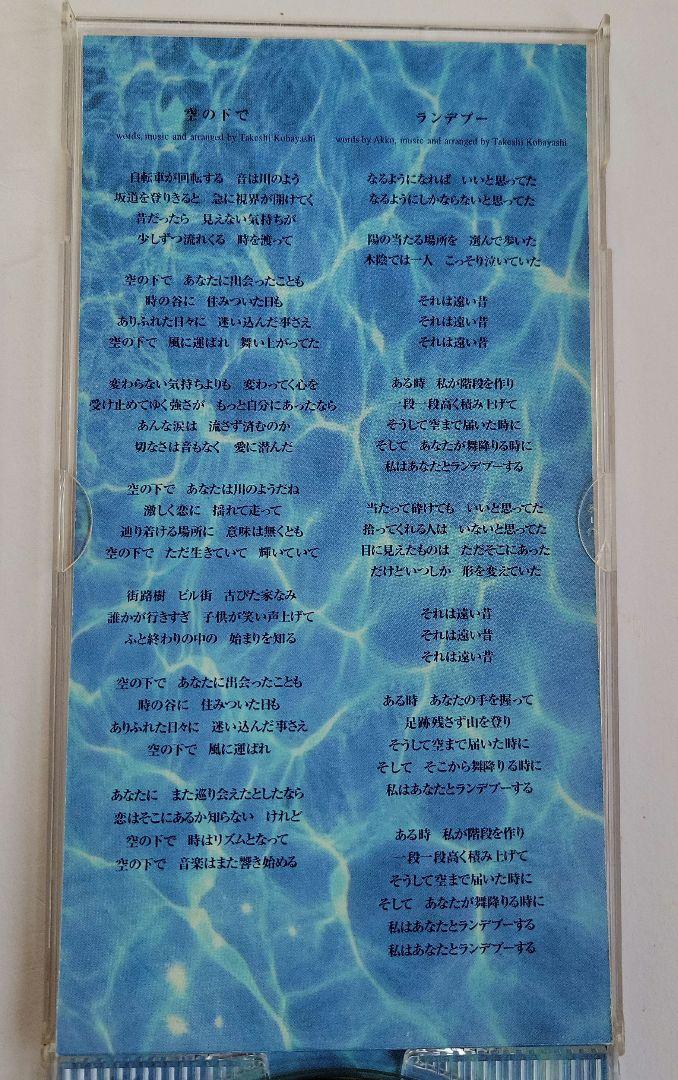 空の下で
words, music and arranged by Takeshi Kobayashi
自転車が回転する　音は川のよう
坂道を登りきると　急に視界が開けてく
昔だったら　見えない気持ちが
少しずつ流れてくる　時を渡って
空の下で　あなたに出会ったことも
時の谷に　住みついた日も
ありふれた日々に　迷い込んだ事さえ
空の下で　風に運ばれ　舞い上がってた
変わらない気持ちよりも　変わってく心を
受け止めてゆく強さが　もっと自分にあったなら
あんな涙は　流さず済むのか
切なさは音もなく　愛に潜んだ
空の下で　あなたは川のようだね
激しく恋に　揺れて走って
辿り着ける場所に　意味は無くとも
空の下で　ただ生きていて　輝いていて
街路樹　ビル街　古びた家なみ
誰かが行きすぎ　子供が笑い声上げて
ふと終わりの中の　始まりを知る
空の下で　あなたに出会ったことも
時の谷に　住みついた日も
ありふれた日々に　迷い込んだ事さえ
空の下で　風に運ばれ
あなたに　また巡り会えたとしたなら
恋はそこにあるか知らない　けれど
空の下で　時はリズムとなって
空の下で　音楽はまた響き始める
ランデブー
words by Akko, music and arranged by Takeshi Kobayashi
なるようになれば　いいと思ってた
なるようにしかならないと思ってた
陽の当たる場所を　選んで歩いた
木陰では一人　こっそり泣いていた
それは遠い昔
それは遠い昔
それは遠い昔
ある時　私が階段を作り
一段一段高く積み上げて
そうして空まで届いた時に
そして　あなたが舞降りる時に
私はあなたとランデブーする
当たって砕けても　いいと思ってた
拾ってくれる人は　いないと思ってた
目に見えたものは　ただそこにあった
だけどいつしか　形を変えていた
それは遠い昔
それは遠い昔
それは遠い昔
ある時　あなたの手を握って
足跡残さず山を登り
そうして空まで届いた時に
そして　そこから舞降りる時に
私はあなたとランデブーする
ある時　私が階段を作り
一段一段高く積み上げて
そうして空まで届いた時に
そして　あなたが舞降りる時に
私はあなたとランデブーする
私はあなたとランデブーする